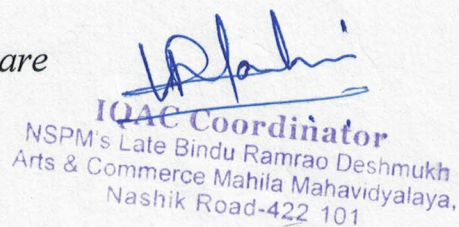 are
IQAC Coordinator
NSPM's Late Bindu Ramrao Deshmukh
Arts & Commerce Mahila Mahavidyalaya,
Nashik Road-422 101